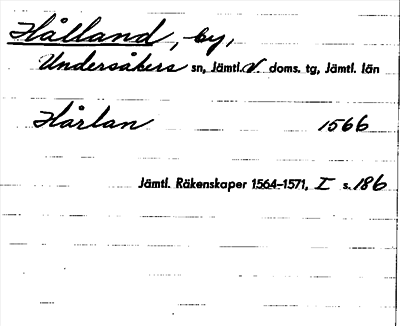 Hålland, by,
Undersåkers sn, Jämtl. V. doms. tg, Jämtl. län
Hårlan 1566
Jämtl. Räkenskaper 1564-1571, I s. 186